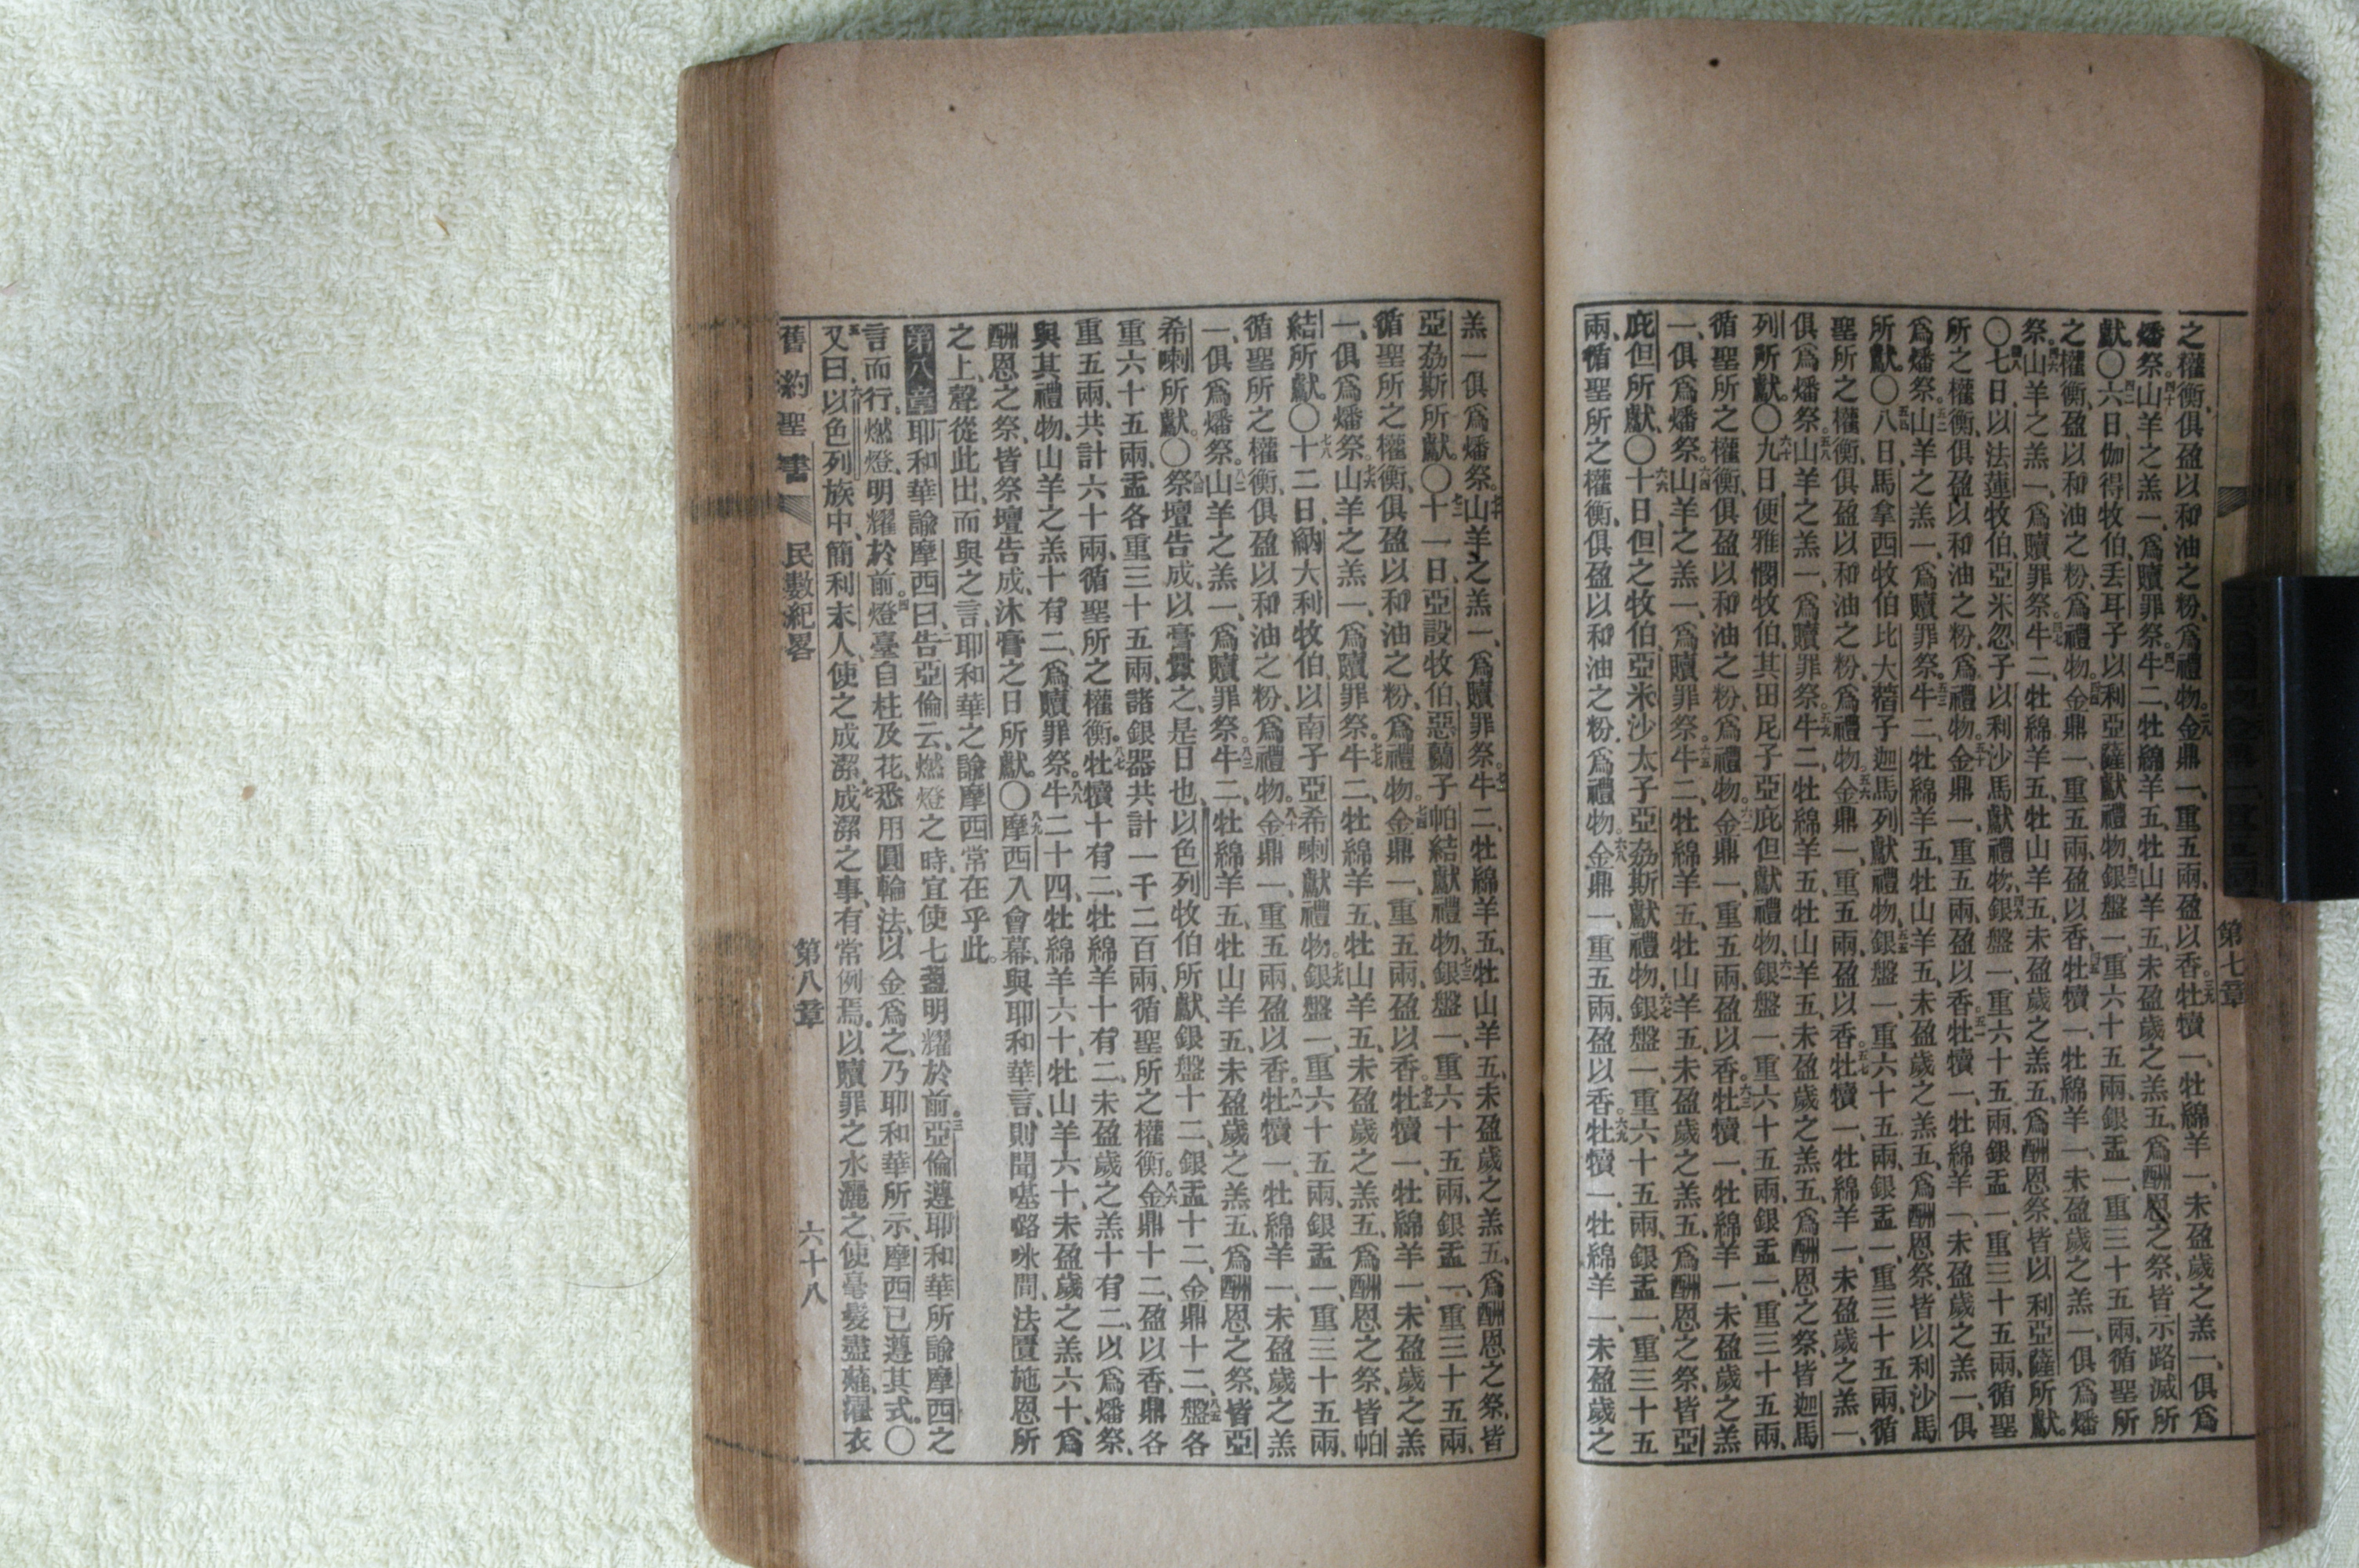 之權衡、俱盈以和油之粉、爲禮物。三九金鼎一、重五兩、盈以香。三九牡犢一、牡綿羊一、未盈歲之羔一、俱爲
燔祭。四十山羊之羔一、爲贖罪祭。四一牛二、牡綿羊五、牡山羊五、未盈歲之羔五、爲酬恩之祭、皆示路滅所
獻。〇四二六日、伽得牧伯、丢耳子以利亞薩獻禮物、四三銀盤一、重六十五兩、銀盂一、重三十五兩、循聖所
之權衡、盈以和油之粉、爲禮物。四四金鼎一、重五兩、盈以香、四五牡犢一、牡綿羊一、未盈歲之羔一、俱爲燔
祭。四六山羊之羔一、爲贖罪祭。四七牛二、牡綿羊五、牡山羊五、未盈歲之羔五、爲酬恩祭、皆以利亞薩所獻。
〇四八七日、以法蓮牧伯、亞米忽子以利沙馬獻禮物、四九銀盤一、重六十五兩、銀盂一、重三十五兩、循聖
所之權衡、俱盈以和油之粉、爲禮物。五十金鼎一、重五兩、盈以香。五一牡犢一、牡綿羊一、未盈歲之羔一、俱
爲燔祭。五二山羊之羔一、爲贖罪祭。五三牛二、牡綿羊五、牡山羊五、未盈歲之羔五、爲酬恩祭、皆以利沙馬
所獻。〇五四八日、馬拿西牧伯比大蓿子迦馬列獻禮物、五五銀盤一、重六十五兩、銀盂一、重三十五兩、循
聖所之權衡、俱盈以和油之粉、爲禮物。五六金鼎一、重五兩、盈以香。五七牡犢一、牡綿羊一、未盈歲之羔一、
俱爲燔祭。五八山羊之羔一、爲贖罪祭。五九牛二、牡綿羊五、牡山羊五、未盈歲之羔五、爲酬恩之祭、皆迦馬
列所獻。〇六十九日、便雅憫牧伯、其田尼子亞庇但獻禮物、六一銀盤一、重六十五兩、銀盂一、重三十五兩、
循聖所之權衡、俱盈以和油之粉、爲禮物。六二金鼎一、重五兩、盈以香。六三牡犢一、牡綿羊一、未盈歲之羔
一、俱爲燔祭。六四山羊之羔一、爲贖罪祭。六五牛二、牡綿羊五、牡山羊五、未盈歲之羔五、爲酬恩之祭、皆亞
庇但所獻。〇六六十日、但之牧伯、亞米沙太子亞劦斯獻禮物、六七銀盤一、重六十五兩、銀盂一、重三十五
兩、循聖所之權衡、俱盈以和油之粉、爲禮物。六八金鼎一、重五兩、盈以香。六九牡犢一、牡綿羊一、未盈歲之
第七章
羔一、俱爲燔祭。七十山羊之羔一、爲贖罪祭。七一牛二、牡綿羊五、牡山羊五、未盈歲之羔五、爲酬恩之祭、皆
亞劦斯所獻。〇七二十一日、亞設牧伯、惡蘭子帕結獻禮物、七三銀盤一、重六十五兩、銀盂一、重三十五兩、
循聖所之權衡、俱盈以和油之粉、爲禮物。七四金鼎一、重五兩、盈以香。七五牡犢一、牡綿羊一、未盈歲之羔
一、俱爲燔祭。七六山羊之羔一、爲贖罪祭。七七牛二、牡綿羊五、牡山羊五、未盈歲之羔五、爲酬恩之祭、皆帕
結所獻。〇七八十二日、納大利牧伯、以南子亞希喇獻禮物。七九銀盤一、重六十五兩、銀盂一、重三十五兩、
循聖所之權衡、俱盈以和油之粉、爲禮物。八十金鼎一、重五兩、盈以香。八一牡犢一、牡綿羊一、未盈歲之羔
一、俱爲燔祭。八二山羊之羔一、爲贖罪祭。八三牛二、牡綿羊五、牡山羊五、未盈歲之羔五、爲酬恩之祭、皆亞
希喇所獻。〇八四祭壇告成、以膏釁之、是日也、以色列牧伯所獻、銀盤十二、銀盂十二、金鼎十二、八五盤各
重六十五兩、盂各重三十五兩、諸銀器共計一千二百兩、循聖所之權衡。八六金鼎十二、盈以香、鼎各
重五兩、共計六十兩、循聖所之權衡。八七牡犢十有二、牡綿羊十有二、未盈歲之羔十有二、以爲燔祭、
與其禮物、山羊之羔十有二、爲贖罪祭。八八牛二十四、牡綿羊六十、牡山羊六十、未盈歲之羔六十、爲
酬恩之祭、皆祭壇告成、沐膏之日所獻。〇八九摩西入會幕、與耶和華言、則聞𠸪㗉㖠間、法匱施恩所
之上、聲從此出、而與之言、耶和華之諭摩西、常在乎此。
第八章 耶和華諭摩西曰、二告亞倫云、燃燈之時、宜使七盞明耀於前。三亞倫遵耶和華所諭摩西之
言而行、燃燈、明耀於前。四燈臺自柱及花、悉用圓輪法、以金爲之、乃耶和華所示、摩西已遵其式。〇
五又曰、六以色列族中、簡利未人、使之成潔、七成潔之事、有常例焉、以贖罪之水灑之、使毫髮盡薙、濯衣
舊約聖書 民數紀畧 第八章 六十八